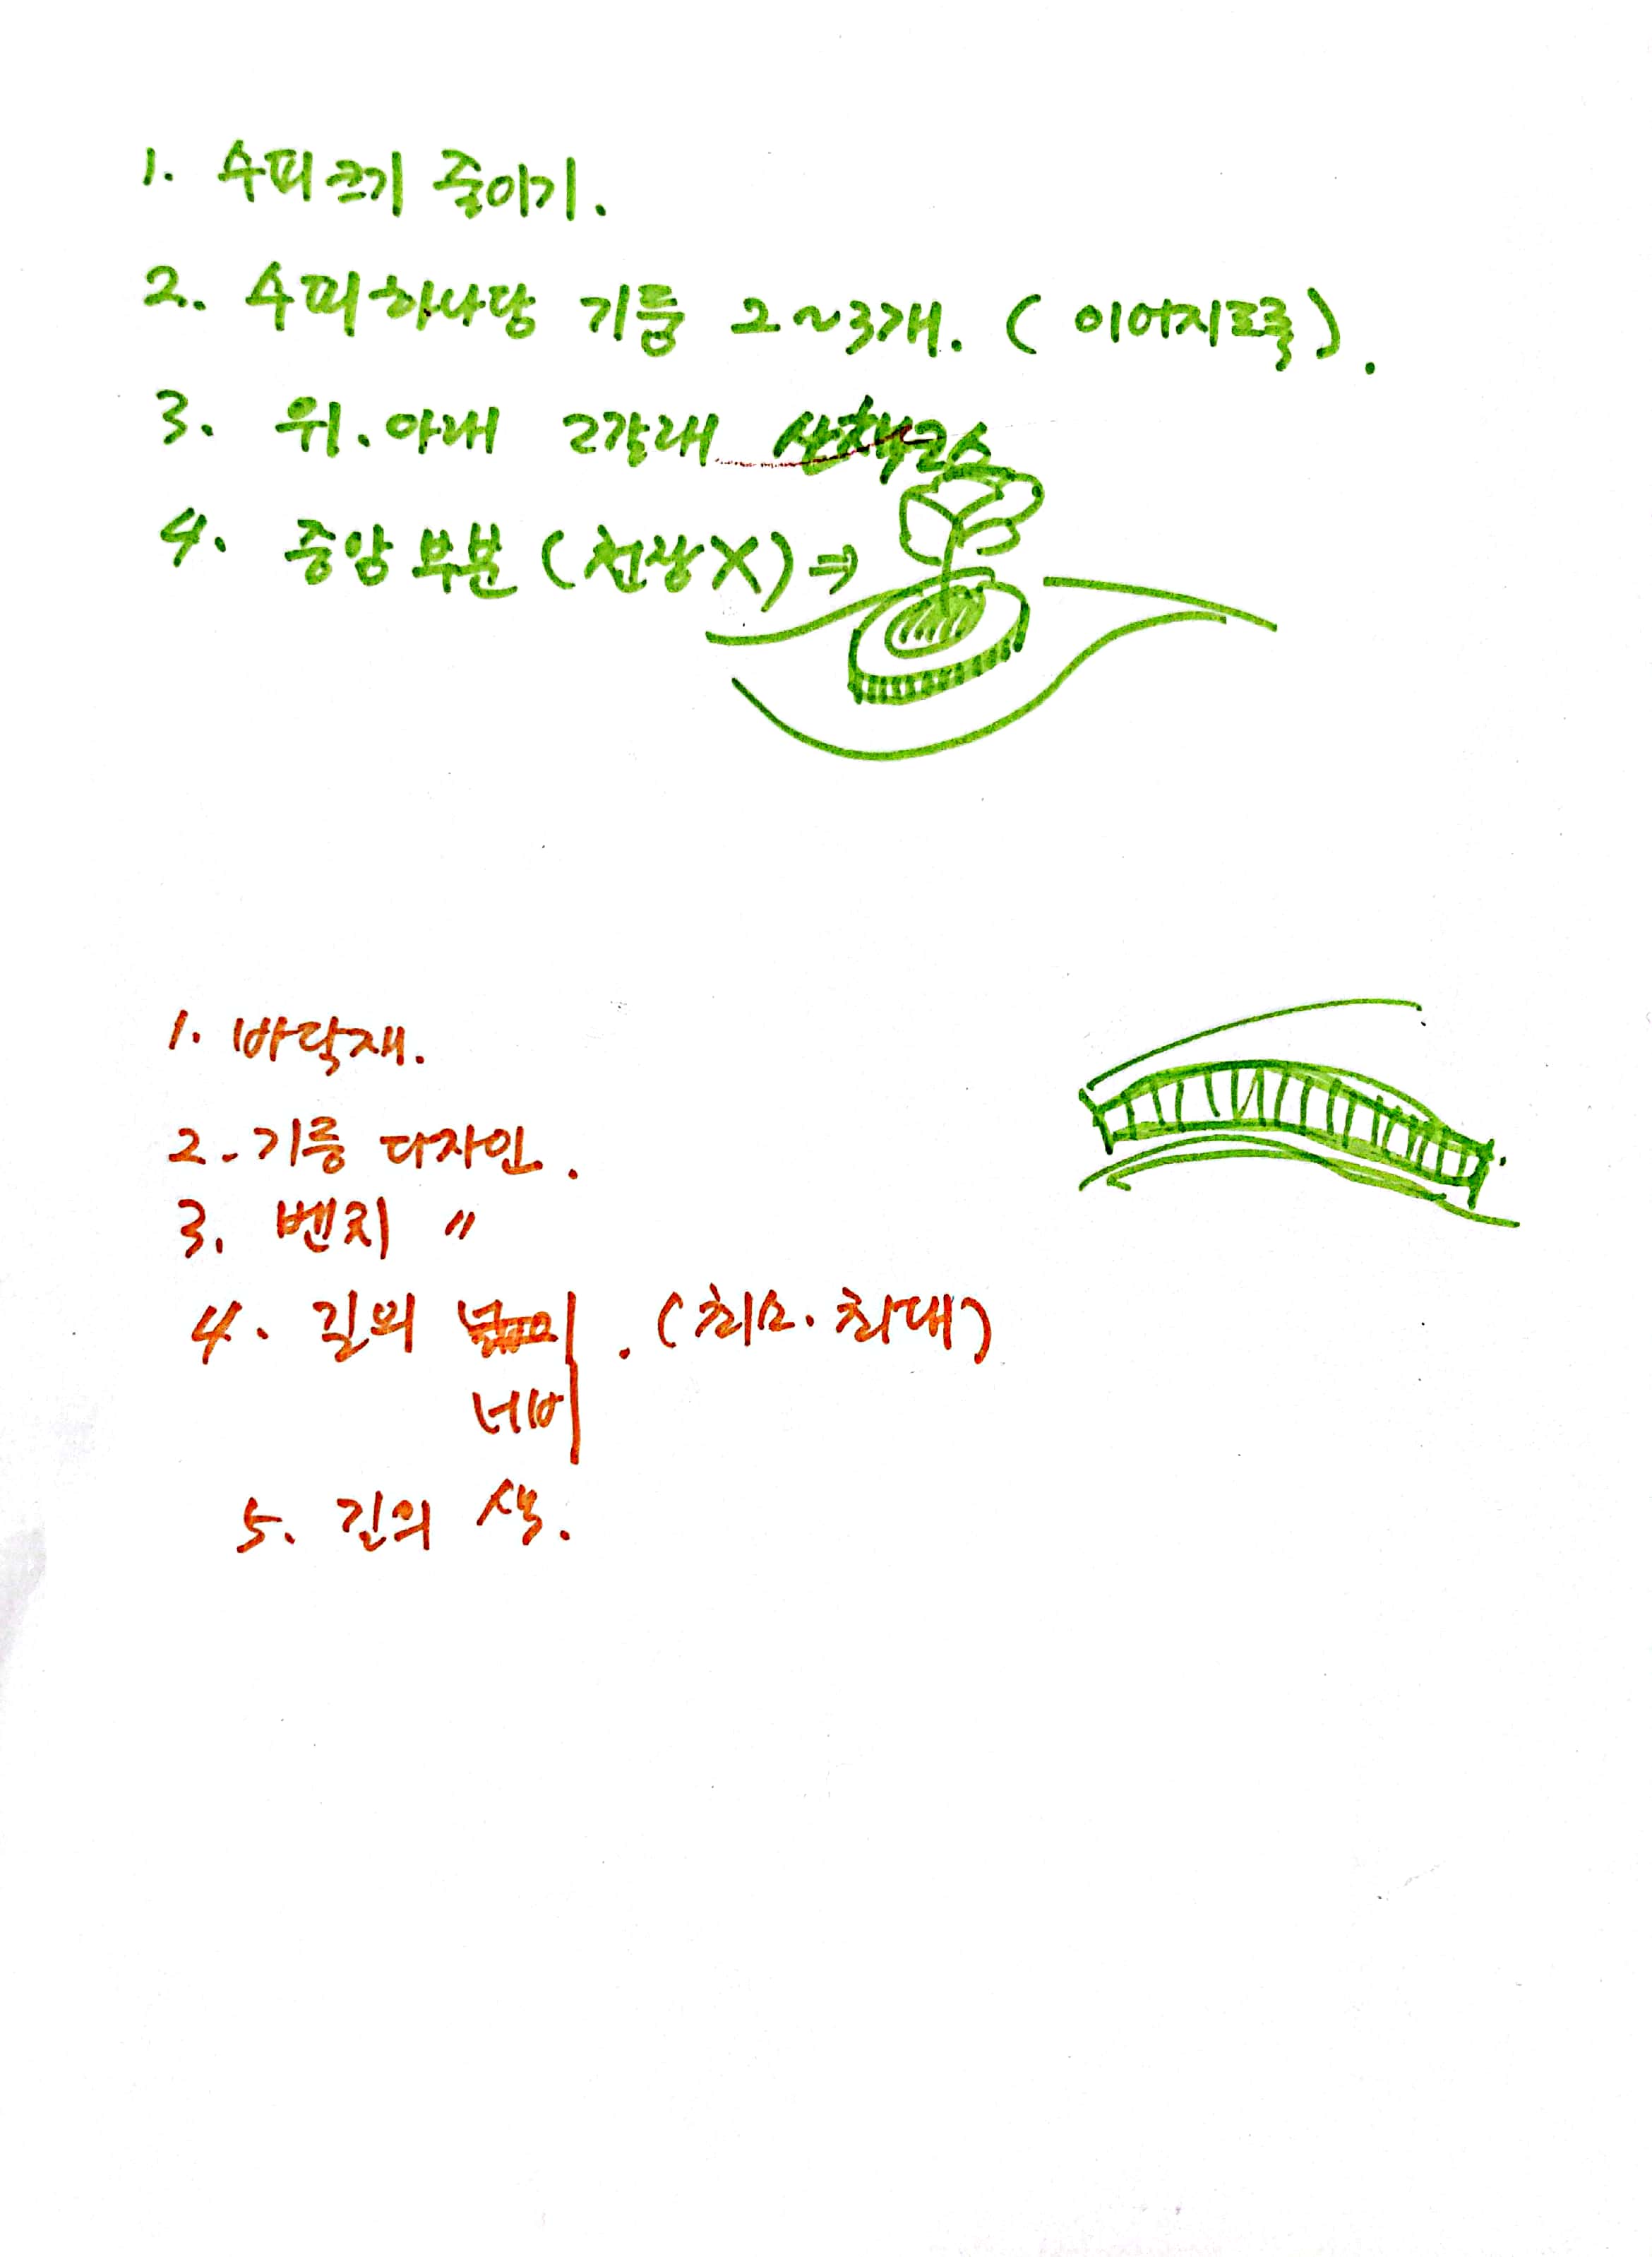 1. 수피크기 줄이기.
2. 수피하나당 기둥 2~3개. (이어지도록).
3. 위.아래 2갈래 산책코스
4. 중앙부분(천장X)⇒
1. 바닥재.
2. 기둥 디자인.
3. 벤치 〃
4. 길의 . (최소. 최대)
너비
5. 길의 색.